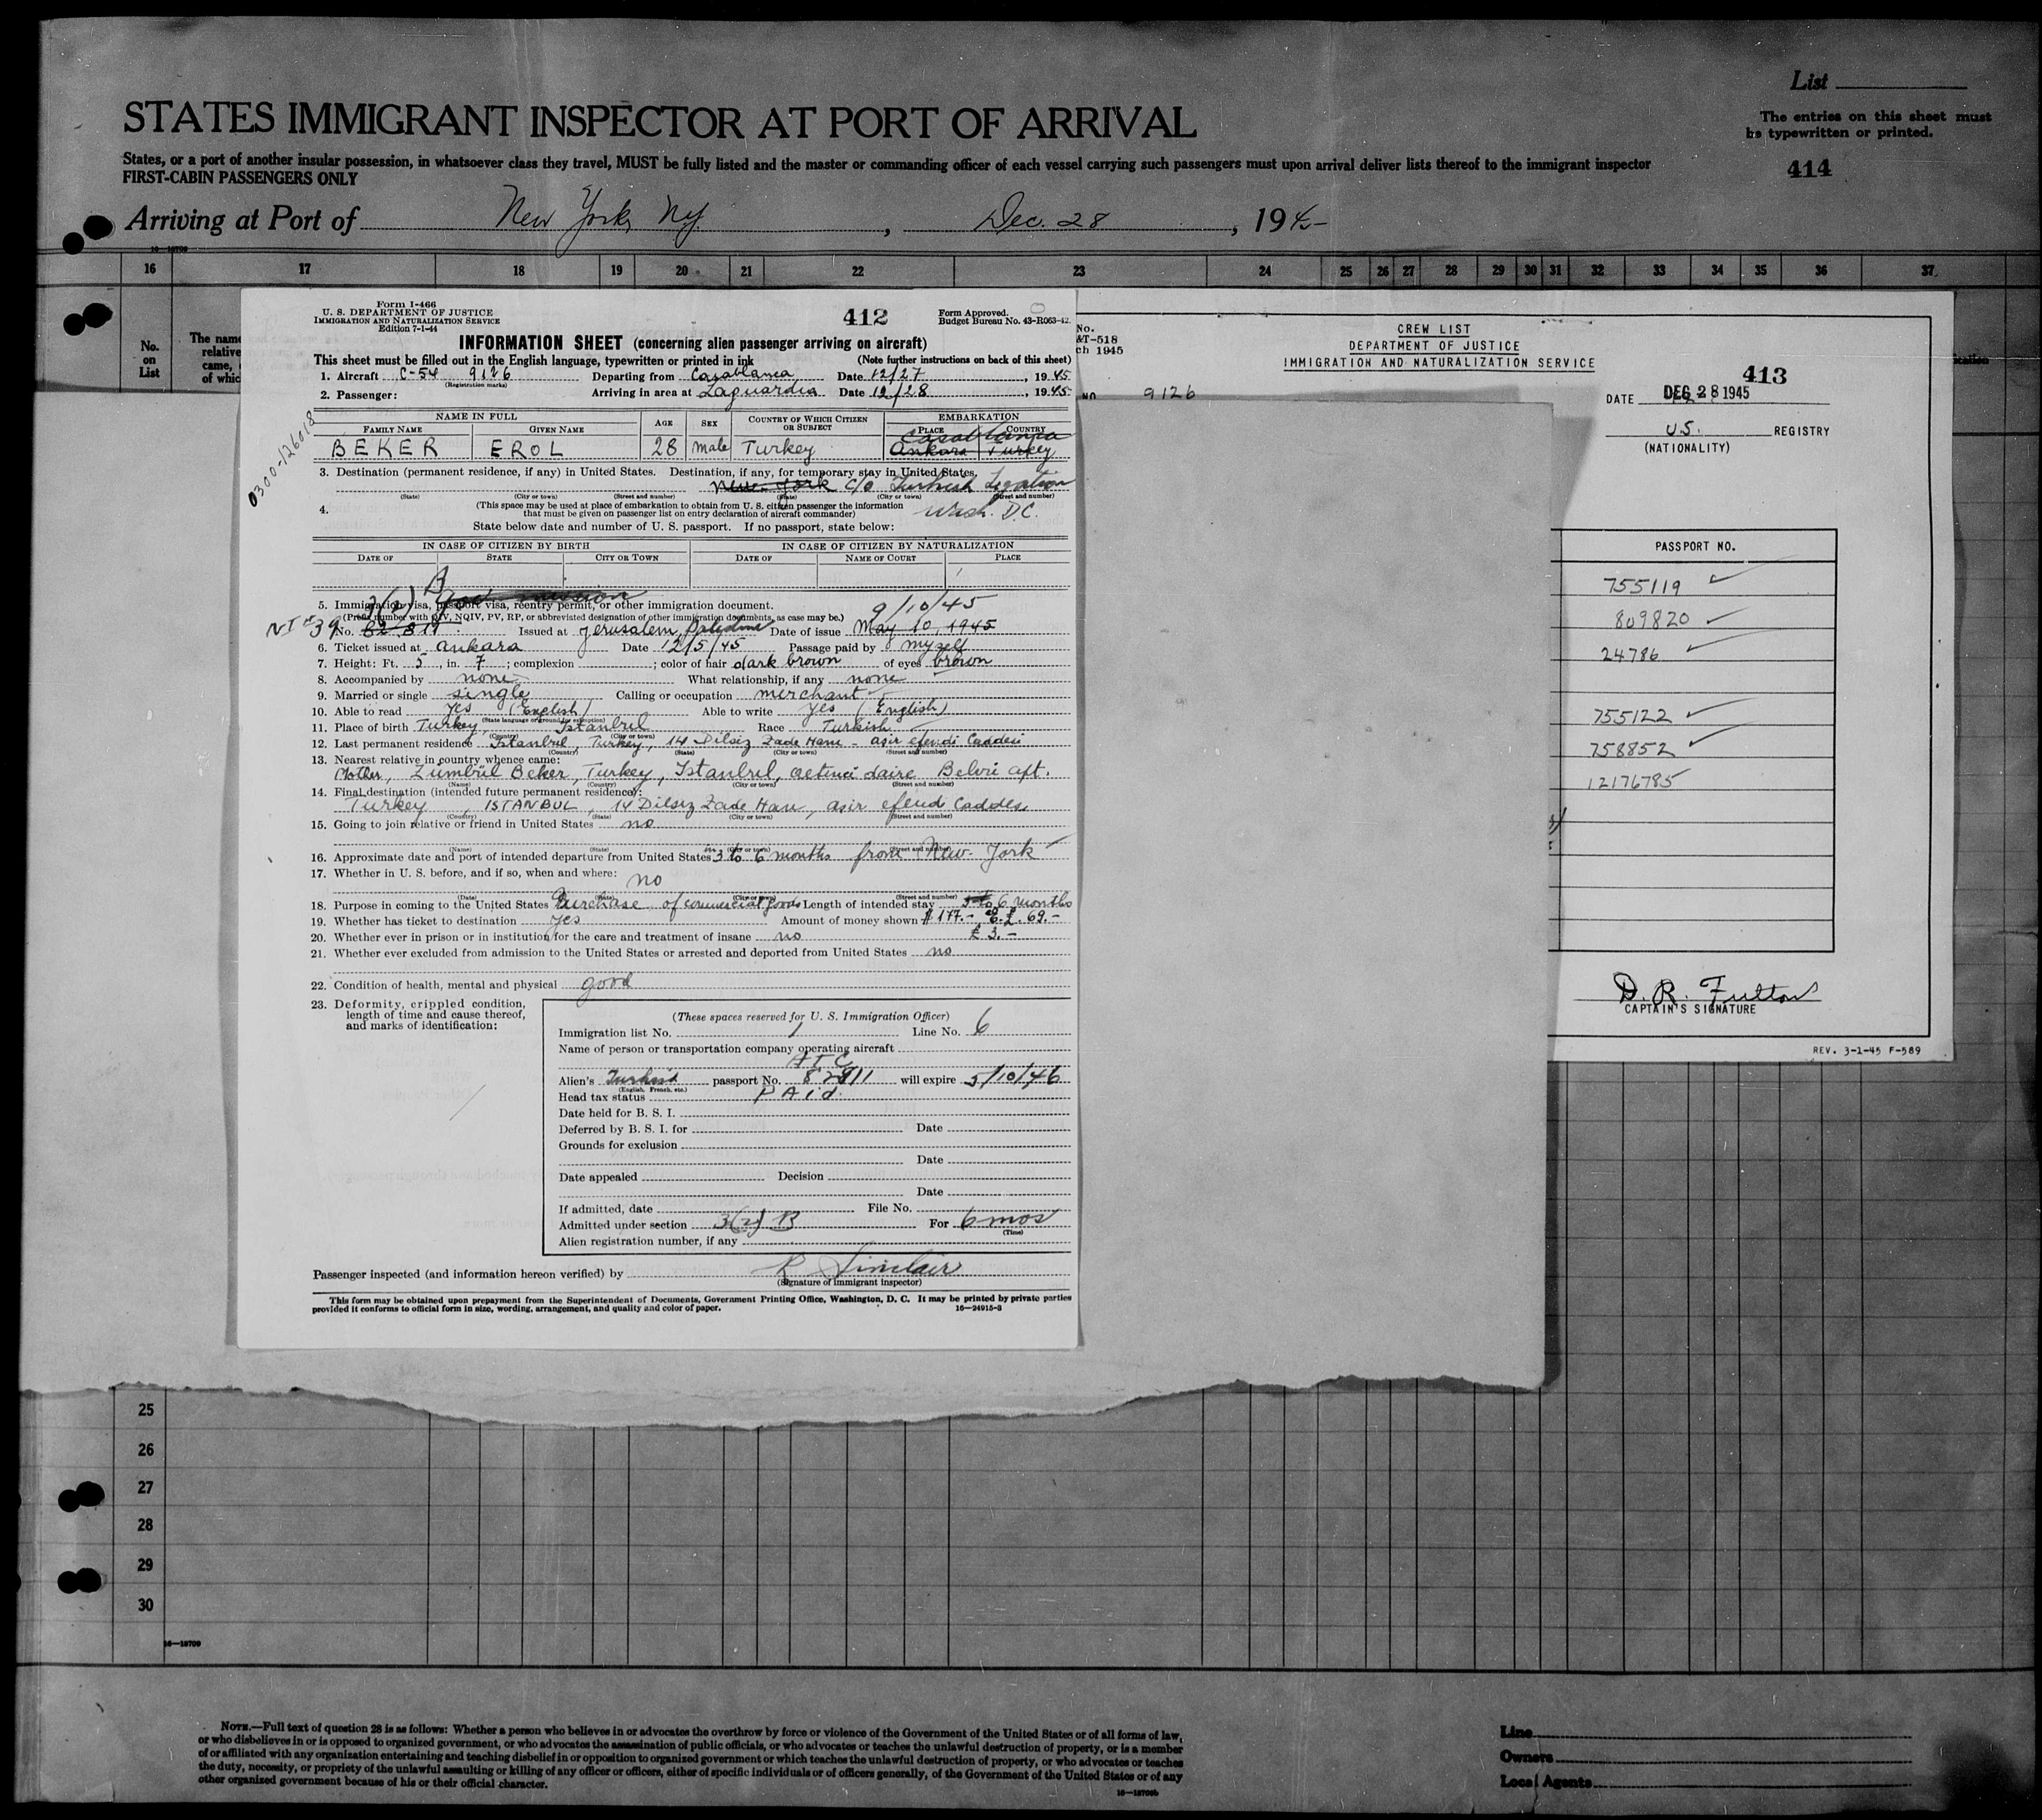 List
STATES IMMIGRANT INSPECTOR AT PORT OF ARRIVAL
The entries on this sheet must
be typewritten or printed.
States, or a port of another insular possession, in whatsoever class they travel, MUST be fully listed and the master or commanding officer of each vessel carrying such passengers must upon arrival deliver lists thereof to the immigrant inspector
FIRST-CABIN PASSENGERS ONLY
414
Arriving at Port of New York, NY. , Dec. 28 , 19
16 17 18 19 20 21 22 23 24 25 26 27 28 29 30 31 32 33 34 35 36 37
No.
on
List
The name
relative
came,
of which
Form I-466
U. S. DEPARTMENT OF JUSTICE
IMMIGRATION AND NATURALIZATION SERVICE
Edition 7-1-44
412
Form Approved.
Budget Bureau No. 43-R063-42.
INFORMATION SHEET (concerning alien passenger arriving on aircraft)
This sheet must be filled out in the English language, typewritten or printed in ink (Note further instructions on back of this sheet)
1. Aircraft C-54 9126 Departing from Casablanca Date 12/27, 1945
(Registration marks)
2. Passenger: Arriving in area at Laguardia Date 12/28, 1945
0300-126018
NAME IN FULL AGE SEX COUNTRY OF WHICH CITIZEN OR SUBJECT EMBARKATION
FAMILY NAME GIVEN NAME PLACE COUNTRY
Casablanca
BEKER EROL 28 male Turkey Ankara Turkey
3. Destination (permanent residence, if any) in United States. Destination, if any, for temporary stay in United States.
New York c/o Turkish Legation
(State) (City or town) (Street and number) (State) (City or town) (Street and number)
Wash. D.C.
4. (This space may be used at place of embarkation to obtain from U. S. citizen passenger the information
that must be given on passenger list on entry declaration of aircraft commander)
State below date and number of U. S. passport. If no passport, state below:
IN CASE OF CITIZEN BY BIRTH IN CASE OF CITIZEN BY NATURALIZATION
DATE OF STATE CITY OR TOWN DATE OF NAME OF COURT PLACE
3(2) B
5. Immigration visa, passport visa, reentry permit, or other immigration document. 9/10/45
(Prefix number with QIV, NQIV, PV, RP, or abbreviated designation of other immigration documents, as case may be.)
No. Issued at Jerusalem, Palestine Date of issue May 10, 1945
6. Ticket issued at Ankara Date 12/5/45 Passage paid by myself
7. Height: Ft. 5, in. 7; complexion ; color of hair dark brown of eyes brown
8. Accompanied by none What relationship, if any none
9. Married or single single Calling or occupation merchant
10. Able to read yes (English) Able to write yes (English)
(State language or ground for exemption)
11. Place of birth Turkey, Istanbul Race Turkish
(Country) (City or town)
12. Last permanent residence Istanbul, Turkey, 14 Dilsiz Zade Han - asir efendi Caddesi
(Country) (State) (City or town) (Street and number)
13. Nearest relative in country whence came:
Mother, Zümbül Beker, Turkey, Istanbul, daire apt.
(Name) (Country) (City or town) (Street and number)
14. Final destination (intended future permanent residence):
Turkey, ISTANBUL, 14 Dilsiz Zade Han, asir efend Caddes
(Country) (State) (City or town) (Street and number)
15. Going to join relative or friend in United States no
(Name) (State) (City or town) (Street and number)
16. Approximate date and port of intended departure from United States in 3 to 6 months from New-York
17. Whether in U. S. before, and if so, when and where: no
(Date) (State) (City or town) (Street and number)
18. Purpose in coming to the United States Purchase of commercial goods Length of intended stay 6 months
19. Whether has ticket to destination yes Amount of money shown $ 177.- £. 69.-
20. Whether ever in prison or in institution for the care and treatment of insane no £ 3.-
21. Whether ever excluded from admission to the United States or arrested and deported from United States no
22. Condition of health, mental and physical good
23. Deformity, crippled condition,
length of time and cause thereof,
and marks of identification:
(These spaces reserved for U. S. Immigration Officer)
Immigration list No. 1 Line No. 6
Name of person or transportation company operating aircraft
A.T.C.
Alien's Turkish passport No. will expire 5/10/46
(English, French, etc.)
Head tax status PAid
Date held for B. S. I.
Deferred by B. S. I. for Date
Grounds for exclusion
Date
Date appealed Decision
Date
If admitted, date File No.
Admitted under section 3(2) B For 6 mos
(Time)
Alien registration number, if any
Passenger inspected (and information hereon verified) by R Sinclair
(Signature of immigrant inspector)
This form may be obtained upon prepayment from the Superintendent of Documents, Government Printing Office, Washington, D. C. It may be printed by private parties
provided it conforms to official form in size, wording, arrangement, and quality and color of paper. 16—24915-3
No.
&T-518
ch 1945
CREW LIST
DEPARTMENT OF JUSTICE
IMMIGRATION AND NATURALIZATION SERVICE
413
NO 9126
DATE DEC 28 1945
U.S. REGISTRY
(NATIONALITY)
PASSPORT NO.
755119
809820
24786
755122
758852
12176785
D. R. Fulton
CAPTAIN'S SIGNATURE
REV. 3-1-45 F-589
25
26
27
28
29
30
16—18709
NOTE.—Full text of question 28 is as follows: Whether a person who believes in or advocates the overthrow by force or violence of the Government of the United States or of all forms of law,
or who disbelieves in or is opposed to organized government, or who advocates the assassination of public officials, or who advocates or teaches the unlawful destruction of property, or is a member
of or affiliated with any organization entertaining and teaching disbelief in or opposition to organized government or which teaches the unlawful destruction of property, or who advocates or teaches
the duty, necessity, or propriety of the unlawful assaulting or killing of any officer or officers, either of specific individuals or of officers generally, of the Government of the United States or of any
other organized government because of his or their official character.
Line
Owners
Local Agents